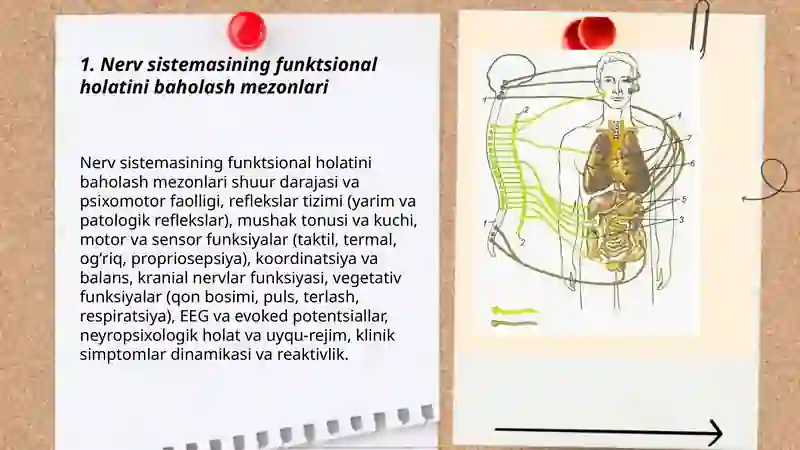 1. Nerv sistemasining funktsional
holatini baholash mezonlari
Nerv sistemasining funktsional holatini
baholash mezonlari shuur darajasi va
psixomotor faolligi, reflekslar tizimi (yarim va
patologik reflekslar), mushak tonusi va kuchi,
motor va sensor funksiyalar (taktil, termal,
og‘riq, propriosepsiya), koordinatsiya va
balans, kranial nervlar funksiyasi, vegetativ
funksiyalar (qon bosimi, puls, terlash,
respiratsiya), EEG va evoked potentsiallar,
neyropsixologik holat va uyqu-rejim, klinik
simptomlar dinamikasi va reaktivlik.
1
2
4
7
6
5
3
1
2